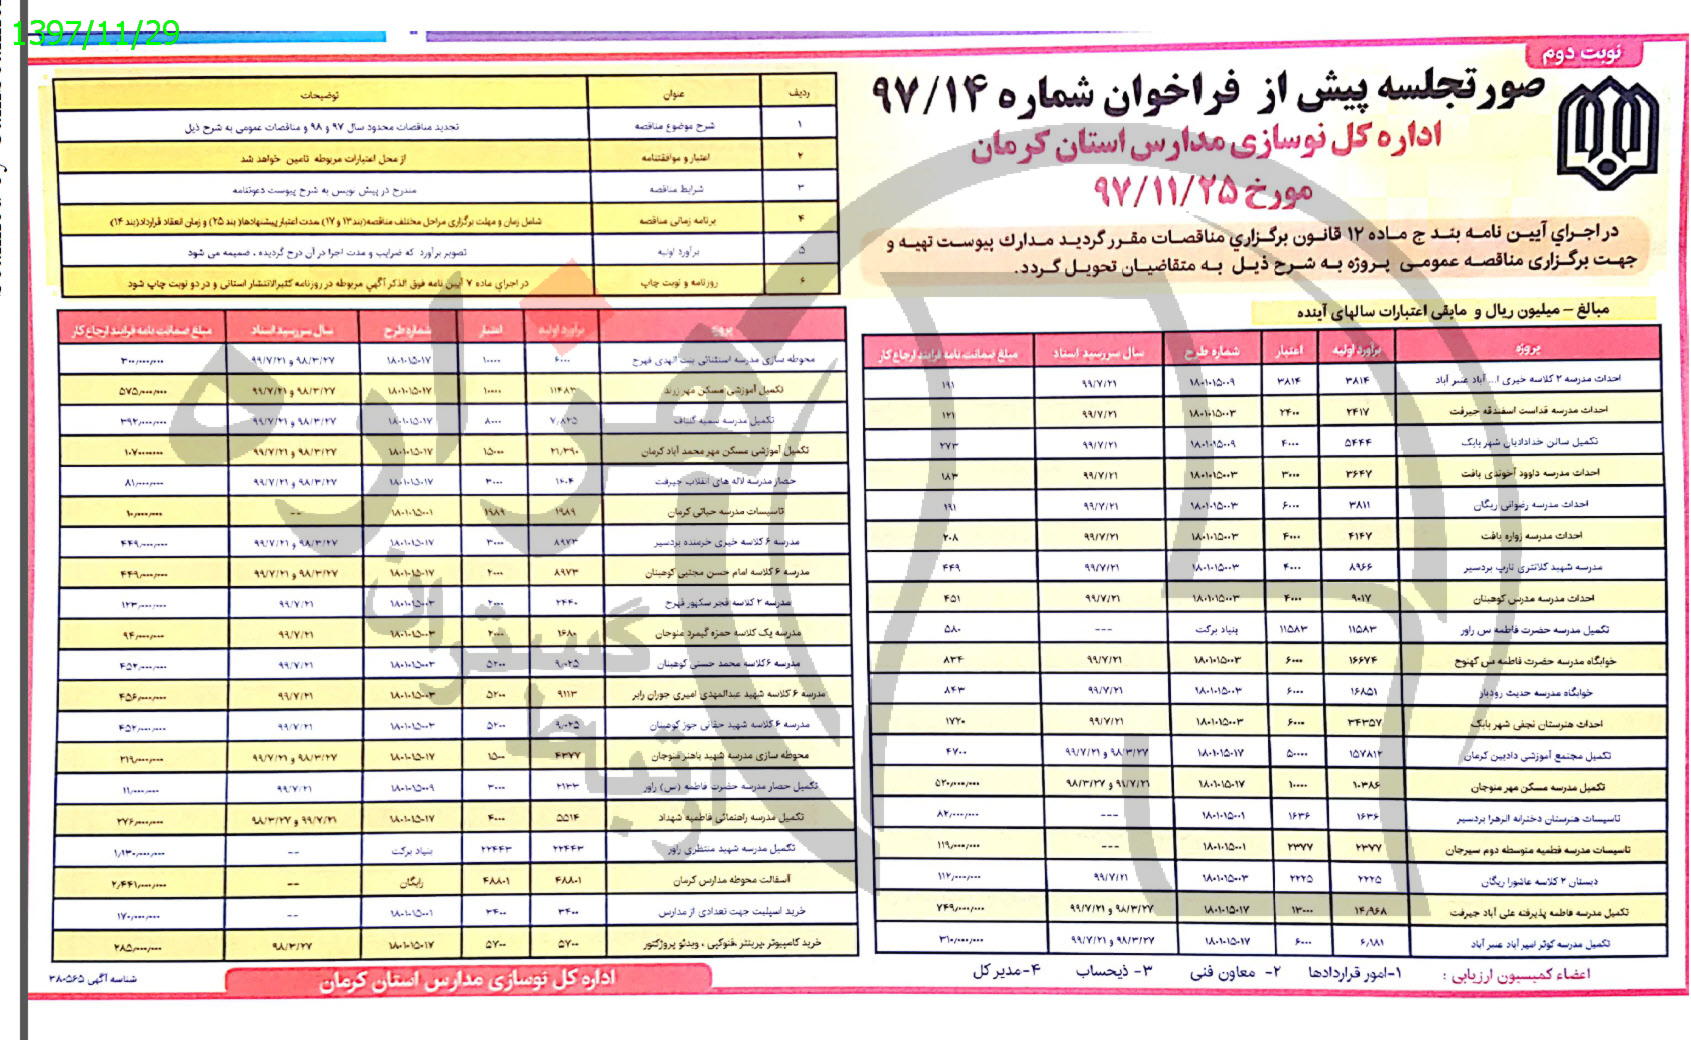 1397/11/29
نوبت دوم
صورتجلسه پیش از فراخوان شماره ۹۷/۱۴
اداره کل نوسازی مدارس استان کرمان
مورخ ۹۷/۱۱/۲۵
در اجراي آیین نامه بند ج ماده ۱۲ قانون برگزاري مناقصات مقرر گردید مدارك پیوست تهیه و
جهت برگزاری مناقصه عمومی پروژه به شرح ذیل به متقاضیان تحویل گردد.
مبالغ – میلیون ریال و مابقی اعتبارات سالهای آینده
پروژه برآورد اولیه اعتبار شماره طرح سال سررسید اسناد مبلغ ضمانت نامه فرایند ارجاع کار
احداث مدرسه ۲ کلاسه خیری ا... آباد عنبر آباد ۳۸۱۴ ۳۸۱۴ ۱۸۰۱۰۱۵۰۰۹ ۹۹/۷/۲۱ ۱۹۱
احداث مدرسه قداست اسفندقه جیرفت ۲۴۱۷ ۲۴۰۰ ۱۸۰۱۰۱۵۰۰۳ ۹۹/۷/۲۱ ۱۲۱
تکمیل سالن خدادادیان شهر بابک ۵۴۴۴ ۴۰۰۰ ۱۸۰۱۰۱۵۰۰۹ ۹۹/۷/۲۱ ۲۷۳
احداث مدرسه داوود آخوندی بافت ۳۶۴۷ ۳۰۰۰ ۱۸۰۱۰۱۵۰۰۳ ۹۹/۷/۲۱ ۱۸۳
احداث مدرسه رضوانی ریگان ۳۸۱۱ ۶۰۰۰ ۱۸۰۱۰۱۵۰۰۳ ۹۹/۷/۲۱ ۱۹۱
احداث مدرسه زواره بافت ۴۱۴۷ ۴۰۰۰ ۱۸۰۱۰۱۵۰۰۳ ۹۹/۷/۲۱ ۲۰۸
مدرسه شهید کلانتری نارپ بردسیر ۸۹۶۶ ۴۰۰۰ ۱۸۰۱۰۱۵۰۰۳ ۹۹/۷/۲۱ ۴۴۹
احداث مدرسه مدرس کوهبنان ۹۰۱۷ ۴۰۰۰ ۱۸۰۱۰۱۵۰۰۳ ۹۹/۷/۲۱ ۴۵۱
تکمیل مدرسه حضرت فاطمه س راور ۱۱۵۸۳ ۱۱۵۸۳ بنیاد برکت --- ۵۸۰
خوابگاه مدرسه حضرت فاطمه س کهنوج ۱۶۶۷۴ ۶۰۰۰ ۱۸۰۱۰۱۵۰۰۳ ۹۹/۷/۲۱ ۸۳۴
خوابگاه مدرسه حدیث رودبار ۱۶۸۵۱ ۶۰۰۰ ۱۸۰۱۰۱۵۰۰۳ ۹۹/۷/۲۱ ۸۴۳
احداث هنرستان نجفی شهر بابک ۳۴۳۵۷ ۶۰۰۰ ۱۸۰۱۰۱۵۰۰۳ ۹۹/۷/۲۱ ۱۷۲۰
تکمیل مجتمع آموزشی دادبین کرمان ۱۵۷۸۱۲ ۵۰۰۰۰ ۱۸۰۱۰۱۵۰۱۷ ۹۸/۳/۲۷ و ۹۹/۷/۲۱ ۴۷۰۰
تکمیل مدرسه مسکن مهر منوجان ۱۰۳۸۶ ۱۰۰۰۰ ۱۸۰۱۰۱۵۰۱۷ ۹۱/۷/۲۱ و ۹۸/۳/۲۷ ۵۲۰,۰۰۰,۰۰۰
تاسیسات هنرستان دخترانه الزهرا بردسیر ۱۶۳۶ ۱۶۳۶ ۱۸۰۱۰۱۵۰۰۱ --- ۸۲,۰۰۰,۰۰۰
تاسیسات مدرسه فطمیه متوسطه دوم سیرجان ۲۳۷۷ ۲۳۷۷ ۱۸۰۱۰۱۵۰۰۱ --- ۱۱۹,۰۰۰,۰۰۰
دبستان ۲ کلاسه عاشورا ریگان ۲۲۲۵ ۲۲۲۵ ۱۸۰۱۰۱۵۰۰۳ ۹۹/۷/۲۱ ۱۱۲,۰۰۰,۰۰۰
تکمیل مدرسه فاطمه پذیرفته علی آباد جیرفت ۱۴,۹۶۸ ۱۳۰۰۰ ۱۸۰۱۰۱۵۰۱۷ ۹۸/۳/۲۷ و ۹۹/۷/۲۱ ۷۴۹,۰۰۰,۰۰۰
تکمیل مدرسه کوثر امیر آباد عنبر آباد ۶,۱۸۱ ۶۰۰۰ ۱۸۰۱۰۱۵۰۱۷ ۹۸/۳/۲۷ و ۹۹/۷/۲۱ ۳۱۰,۰۰۰,۰۰۰
اعضاء کمیسیون ارزیابی : ۱-امور قراردادها ۲- معاون فنی ۳- ذیحساب ۴-مدیر کل
ردیف عنوان توضیحات
۱ شرح موضوع مناقصه تجدید مناقصات محدود سال ۹۷ و ۹۸ و مناقصات عمومی به شرح ذیل
۲ اعتبار و موافقتنامه از محل اعتبارات مربوطه تامین خواهد شد
۳ شرایط مناقصه مندرج در پیش نویس به شرح پیوست دعوتنامه
۴ برنامه زمانی مناقصه شامل زمان و مهلت برگزاری مراحل مختلف مناقصه(بند۱۳ و ۱۷) مدت اعتبار پیشنهادها( بند ۲۵) و زمان انعقاد قرارداد(بند ۱۴)
۵ برآورد اولیه تصویر برآورد که ضرایب و مدت اجرا در آن درج گردیده ، ضمیمه می شود
۶ روزنامه و نوبت چاپ در اجراي ماده ۷ آیین نامه فوق الذکر آگهي مربوطه در روزنامه کثیرالانتشار استانی و در دو نوبت چاپ شود
پروژه برآورد اولیه اعتبار شماره طرح سال سررسید اسناد مبلغ ضمانت نامه فرایند ارجاع کار
محوطه سازی مدرسه استثنائی بنت الهدی فهرج ۶۰۰۰ ۱۰۰۰۰ ۱۸۰۱۰۱۵۰۱۷ ۹۸/۳/۲۷ و ۹۹/۷/۲۱ ۳۰۰,۰۰۰,۰۰۰
تکمیل آموزشی مسکن مهر زرند ۱۱۴۸۳ ۱۰۰۰۰ ۱۸۰۱۰۱۵۰۱۷ ۹۸/۳/۲۷ و ۹۹/۷/۲۱ ۵۷۵,۰۰۰,۰۰۰
تکمیل مدرسه سمیه گلباف ۷,۸۲۵ ۸۰۰۰ ۱۸۰۱۰۱۵۰۱۷ ۹۸/۳/۲۷ و ۹۹/۷/۲۱ ۳۹۲,۰۰۰,۰۰۰
تکمیل آموزشی مسکن مهر محمد آباد کرمان ۲۱,۳۹۰ ۱۵۰۰۰ ۱۸۰۱۰۱۵۰۱۷ ۹۸/۳/۲۷ و ۹۹/۷/۲۱ ۱۰۷۰۰۰۰۰۰۰
حصار مدرسه لاله های انقلاب جیرفت ۱۶۰۴ ۳۰۰۰ ۱۸۰۱۰۱۵۰۱۷ ۹۸/۳/۲۷ و ۹۹/۷/۲۱ ۸۱,۰۰۰,۰۰۰
تاسیسات مدرسه حیاتی کرمان ۱۹۸۹ ۱۹۸۹ ۱۸۰۱۰۱۵۰۰۱ -- ۱۰,۰۰۰,۰۰۰
مدرسه ۶ کلاسه خیری خرمنده بردسیر ۸۹۷۳ ۳۰۰۰ ۱۸۰۱۰۱۵۰۱۷ ۹۸/۳/۲۷ و ۹۹/۷/۲۱ ۴۴۹,۰۰۰,۰۰۰
مدرسه ۶ کلاسه امام حسن مجتبی کوهبنان ۸۹۷۳ ۲۰۰۰ ۱۸۰۱۰۱۵۰۱۷ ۹۸/۳/۲۷ و ۹۹/۷/۲۱ ۴۴۹,۰۰۰,۰۰۰
مدرسه ۲ کلاسه فجر سکهور فهرج ۲۴۴۰ ۲۰۰۰ ۱۸۰۱۰۱۵۰۰۳ ۹۹/۷/۲۱ ۱۲۳,۰۰۰,۰۰۰
مدرسه یک کلاسه حمزه گیمرد منوجان ۱۶۸۰ ۲۰۰۰ ۱۸۰۱۰۱۵۰۰۳ ۹۹/۷/۲۱ ۹۴,۰۰۰,۰۰۰
مدرسه ۶کلاسه محمد حسنی کوهبنان ۹,۰۲۵ ۵۲۰۰ ۱۸۰۱۰۱۵۰۰۳ ۹۹/۷/۲۱ ۴۵۲,۰۰۰,۰۰۰
مدرسه ۶ کلاسه شهید عبدالمهدی امیری جوران رابر ۹۱۱۳ ۵۲۰۰ ۱۸۰۱۰۱۵۰۰۳ ۹۹/۷/۲۱ ۴۵۶,۰۰۰,۰۰۰
مدرسه ۶ کلاسه شهید حقانی جوز کوهبنان ۹,۰۲۵ ۵۲۰۰ ۱۸۰۱۰۱۵۰۰۳ ۹۹/۷/۲۱ ۴۵۲,۰۰۰,۰۰۰
محوطه سازی مدرسه شهید باهنر منوجان ۴۳۷۷ ۱۵۰۰ ۱۸۰۱۰۱۵۰۱۷ ۹۸/۳/۲۷ و ۹۹/۷/۲۱ ۲۱۹,۰۰۰,۰۰۰
تکمیل حصار مدرسه حضرت فاطمه (س) راور ۲۱۳۳ ۳۰۰۰ ۱۸۰۱۰۱۵۰۰۹ ۹۹/۷/۲۱ ۱۱,۰۰۰,۰۰۰
تکمیل مدرسه راهنمائی فاطمیه شهداد ۵۵۱۴ ۴۰۰۰ ۱۸۰۱۰۱۵۰۱۷ ۹۹/۷/۲۱ و ۹۸/۳/۲۷ ۲۷۶,۰۰۰,۰۰۰
تکمیل مدرسه شهید منتظری راور ۲۲۴۴۳ ۲۲۴۴۳ بنیاد برکت -- ۱,۱۳۰,۰۰۰,۰۰۰
آسفالت محوطه مدارس کرمان ۴۸۸۰۱ ۴۸۸۰۱ رایگان -- ۲,۴۴۱,۰۰۰,۰۰۰
خرید اسپلیت جهت تعدادی از مدارس ۳۴۰۰ ۳۴۰۰ ۱۸۰۱۰۱۵۰۰۱ -- ۱۷۰,۰۰۰,۰۰۰
خرید کامپیوتر ،پرینتر ،فتوکپی ، ویدئو پروژکتور ۵۷۰۰ ۵۷۰۰ ۱۸۰۱۰۱۵۰۱۷ ۹۸/۳/۲۷ ۲۸۵,۰۰۰,۰۰۰
اداره کل نوسازی مدارس استان کرمان
شناسه آگهی ۳۸۰۵۶۵
هزاره
گستران
ارتباط